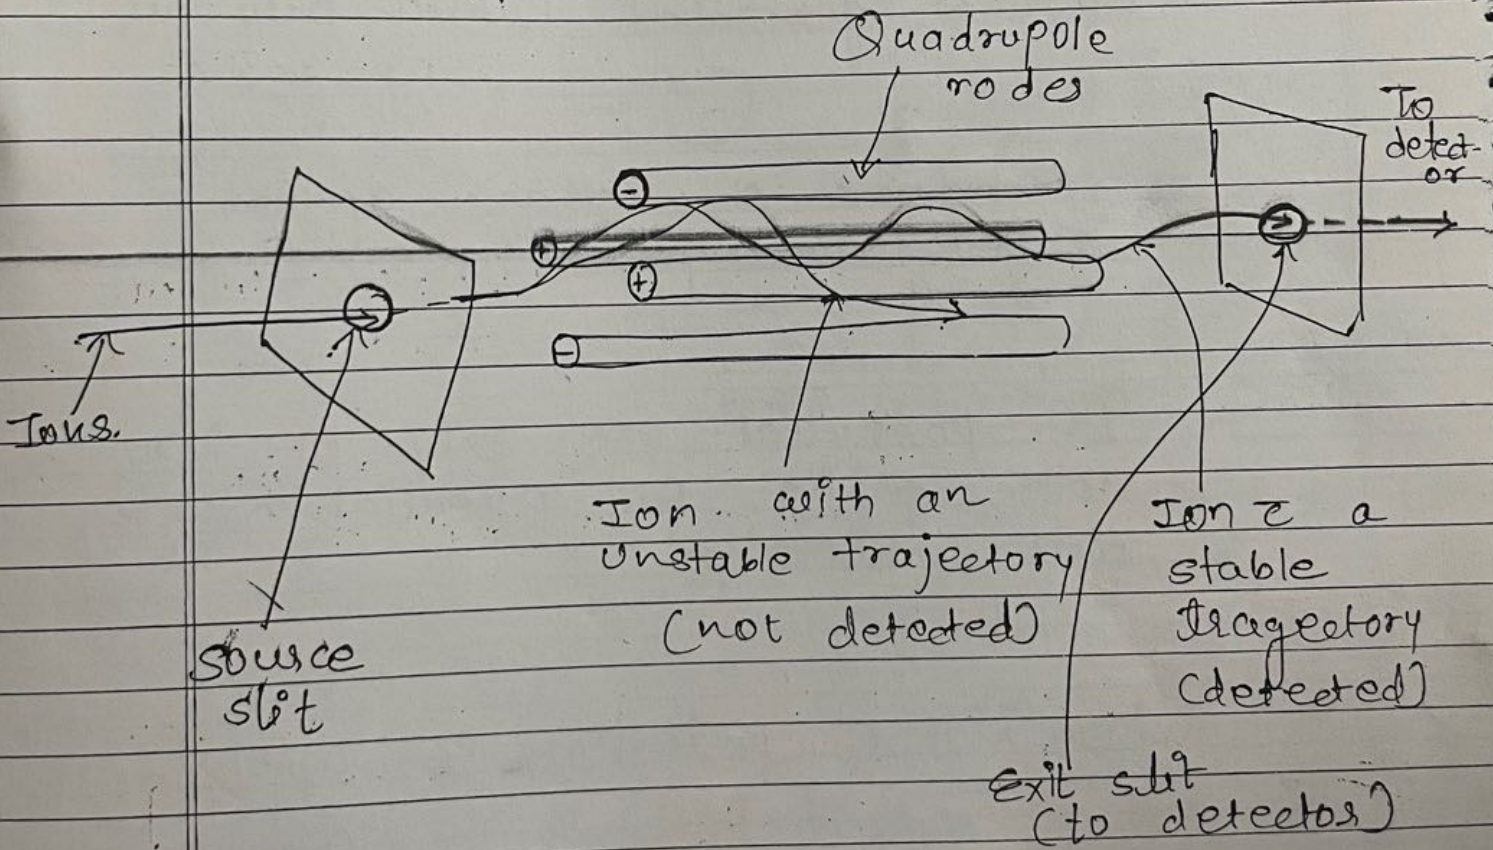 Quadrupole
rodes
To
detect-
or
-
+
+
-
Ions.
Ion with an
unstable trajectory
(not detected)
Ion c̄ a
stable
tragectory
(detected)
source
slit
Exit slit
(to detector)